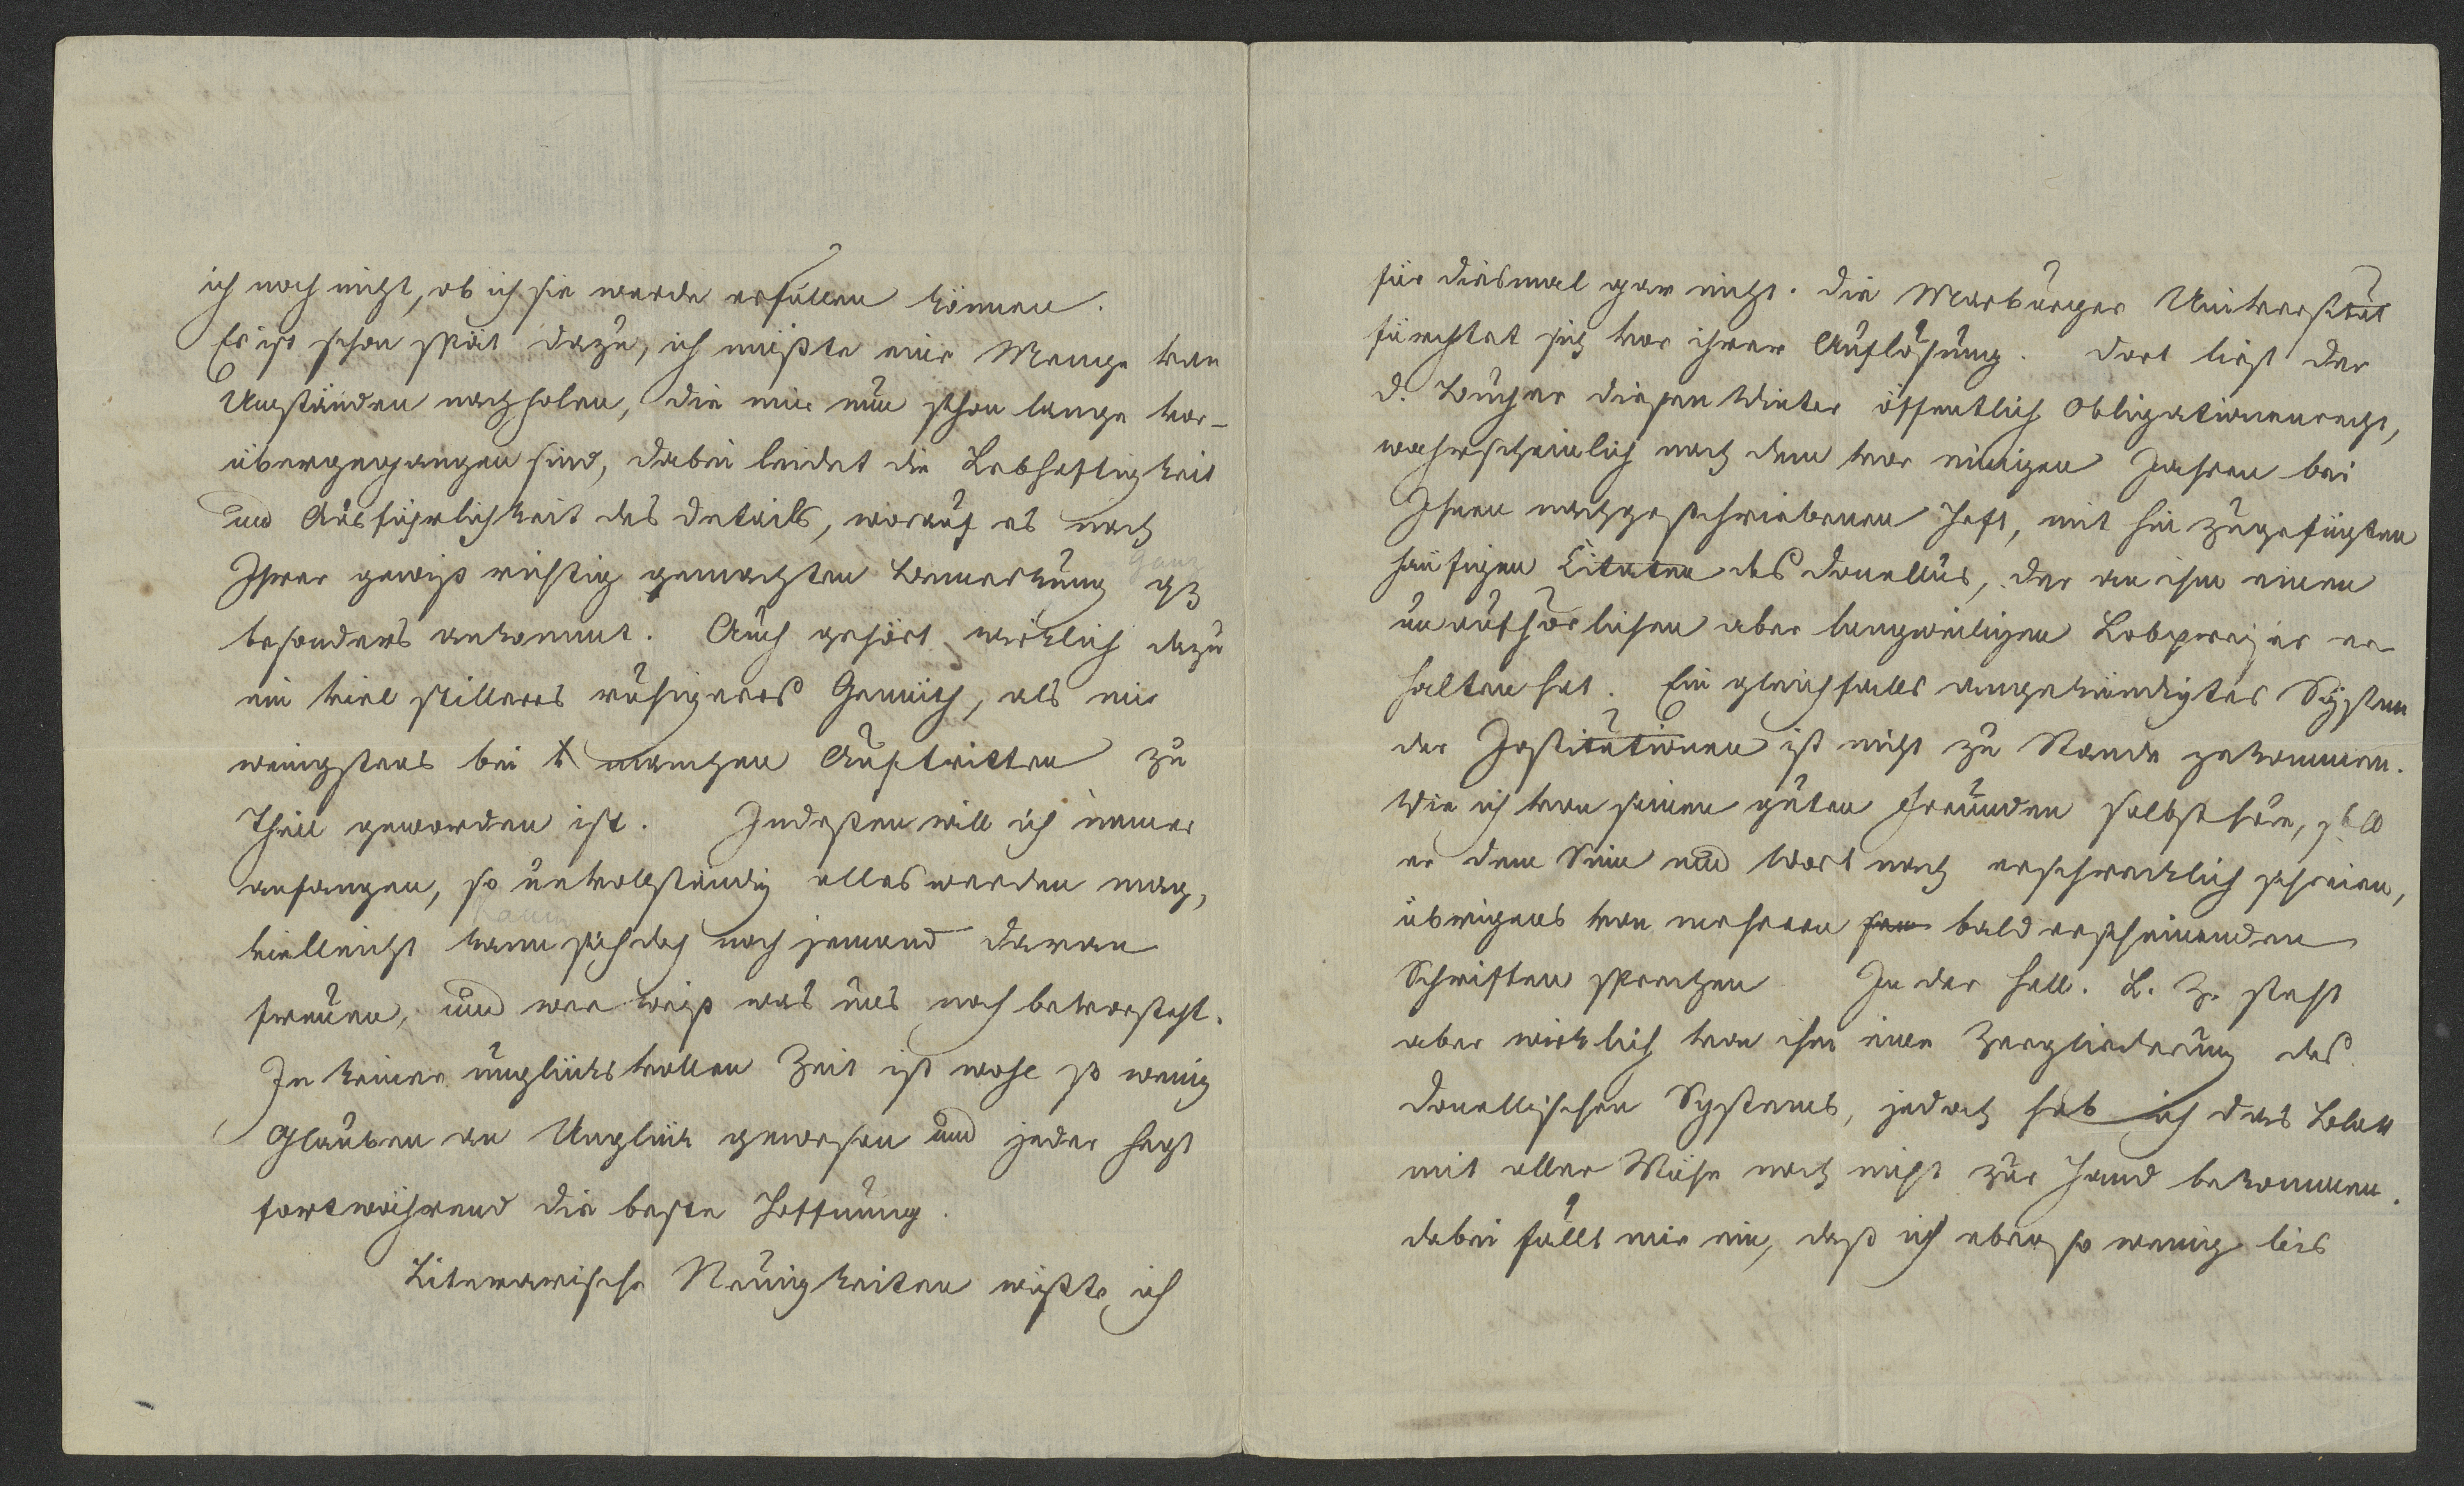 ich noch nicht, ob ich sie werde erfüllen können.
Es ist schon spät dazu, ich müßte eine Menge von
Umständen nachholen, die mir nun schon lange vor-
übergegangen sind, dabei leidet die Lebhaftigkeit
und Ausführlichkeit des Details, worauf es nach
Ihrer gewiß richtig gemachten Bemerkung gz
ganz
besonders ankommt. Auch gehört wirklich dazu
ein viel stilleres ruhigeres Gemüth, als mir
wenigstens bei manchen Auftritten zu
Theil geworden ist. Indeßen will ich immer
anfangen, so unvollständig alles werden mag,
kann
vielleicht kann sich doch noch jemand daran
freuen, und wer weiß was uns noch bevorsteht.
In keiner unglücksvollen Zeit ist wohl so wenig
Glauben an Unglück gewesen und jeder hegt
fortwährend die beste Hoffnung.
Literarische Neuigkeiten wüßte ich
für diesmal gar nicht. Die Marburger Universität
fürchtet sich vor ihrer Auflösung. Dort liest der
D. Bucher diesen Winter öffentlich Obligationenrecht,
wahrscheinlich nach dem vor einigen Jahren bei
Ihnen nachgeschriebenen Heft, mit hin zugefügten
häufigen Citaten des Donellus, der an ihm einen
unaufhörlichen aber langweiligen Lobpreiser er
halten hat. Ein gleichfalls angekündigtes System
der Institutionen ist nicht zu Stande gekommen.
Wie ich von seinen guten Freunden selbst höre, soll
er dem Sinn und Wort nach erschrecklich schreien,
übrigens von mehrern bald erscheinenden
Schriften sprechen In der Hall. L. Z. steht
aber wirklich von ihm eine Zergliederung des
Donellischen Systems, jedoch hab ich das Blatt
mit aller Mühe noch nicht zur Hand bekommen.
dabei fällt mir ein, daß ich eben so wenig bis